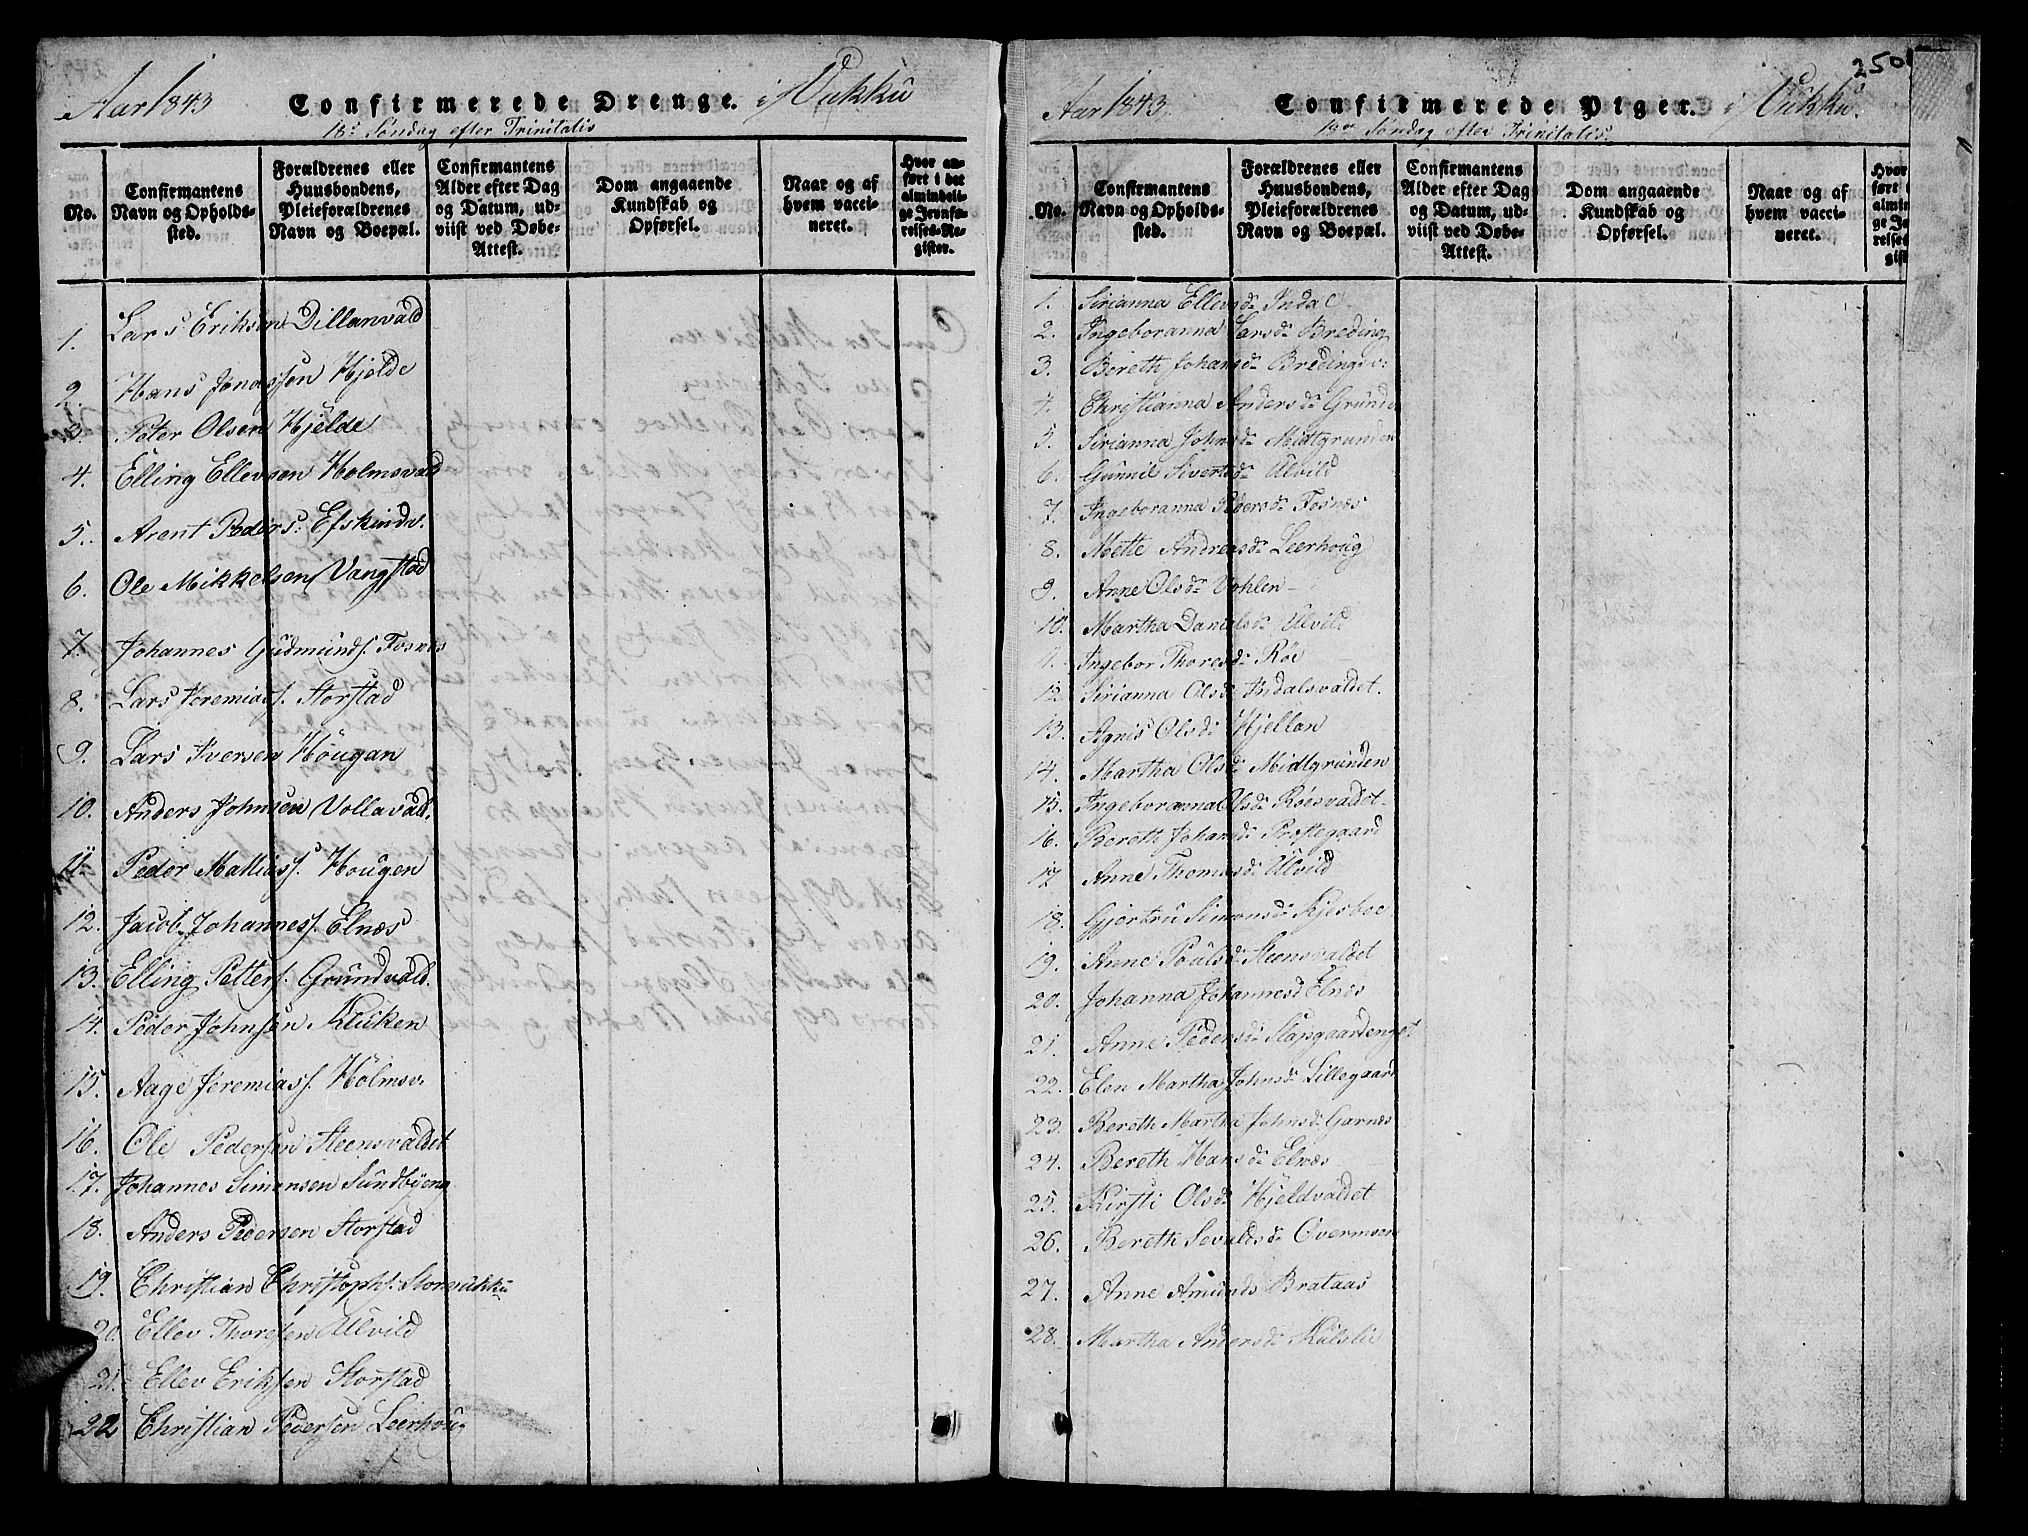 Aar 1843 Confirmerede Drenge. i Vukku
18de Søndag efter Trinitatis
No.
Confirmantens Navn og Opholds-sted.
Forældrenes eller Huusbondens, Pleieforældrenes Navn og Boepæl.
Confirmantens Alder efter Dag og Datum, ud-viist ved Døbe-Attest.
Dom angaaende Kundskab og Opførsel.
Naar og af hvem vacci-neret.
Hvor an-ført i det almindeli-ge Jevnfø-relses-Re-gister.
1. Lars Eriksen Dillanvald
2. Hans Jonassen Hjelde
3. Peter Olsen Hjelde
4. Elling Ellevsen Holmsvald
5. Arent Peders: Efskinds.
6. Ole Mikkelsen Vangstad
7. Johannes Gudmunds. Fosnes
8. Lars Jeremiass. Storstad
9. Lars Iversen Hougan
10. Anders Johnsen Vollavald.
11. Peder Mathiass. Hougen
12. Jacob Johanness. Elnæs
13. Elling Petters. Grundvald.
14. Peder Johnsen Kluken
15. Aage Jeremiass. Holmsv:
16. Ole Pedersen Steensvaldet
17. Johannes Simonsen Sundbyen
18. Anders Pedersen Storstad
19. Christian Christophs. Storvukku
20. Ellev Thoresen Ulvild
21. Ellev Eriksen Storstad
22 Christian Pedersen Leerhoug
250
Aar 1843. Confirmerede Piger. i Vukku.
18de Søndag efter Trinitatis
No.
Confirmantens Navn og Opholds-sted.
Forældrenes eller Huusbondens, Pleieforældrenes Navn og Boepæl.
Confirmantens Alder efter Dag og Datum, ud-viist ved Døbe-Attest.
Dom angaaende Kundskab og Opførsel.
Naar og af hvem vacci-neret.
1. Sirianna Ellevsd. Indal
2. Ingeboranna Larsd. Breding
3. Bereth Johansd. Bredingsv:
4. Christianna Andersd. Grunden
5. Sirianna Johnsd. Midtgrunden
6. Gunnil Sivertsd. Ulvild
7. Ingeboranna Pedersd. Fosnæs
8. Mette Andreasd. Leerhoug
9. Anne Olsd. Vohlen
10. Martha Danielsd. Ulvild
11. Ingebor Thoresd. Röe
12 Sirianna Olsd. Indalsvaldet.
13. Agnis Olsd. Hjellan
14. Martha Olsd. Midtgrunden
15. Ingeboranna Olsd. Röesvaldet
16. Bereth Johansd. Præstegaard
17 Anne Thomasd. Ulvild
18. Gjertru Simonsd. Kjesboe
19. Anne Poulsd. Steensvaldet
20. Johanna Johannesd Elnæs
21. Anne Pedersd. Slapgaardenget
22. Elen Martha Johnsd. Lillegaard
23. Bereth Martha Johnsd. Garnæs
24. Bereth Hansd. Elnæs
25. Kirsti Olsd. Hjeldvaldet
26. Bereth Sevaldsd. Overmoen
27. Anne Amunds Brataas
28. Martha Andersd. Kulslie